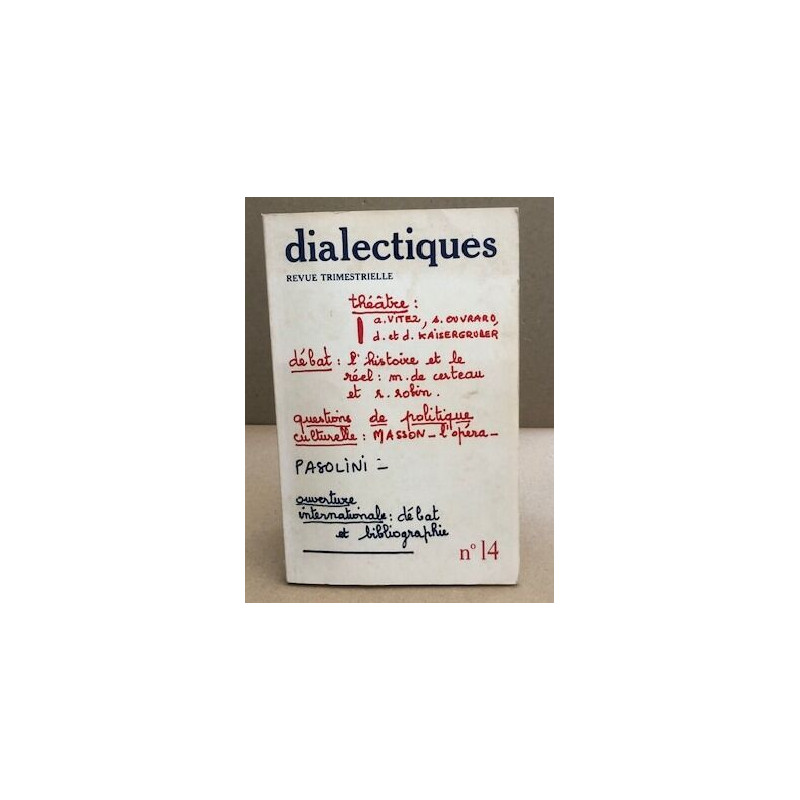 dialectiques
REVUE TRIMESTRIELLE
théâtre :
a. VITEZ, s. OUVRARD,
d. et d. KAISERGRUBER
débat : l'histoire et le
réel : m. de certeau
et r. robin.
questions de politique
culturelle : MASSON _ l'opéra _
PASOLINI =
ouverture
internationale : débat
et bibliographie
n° 14